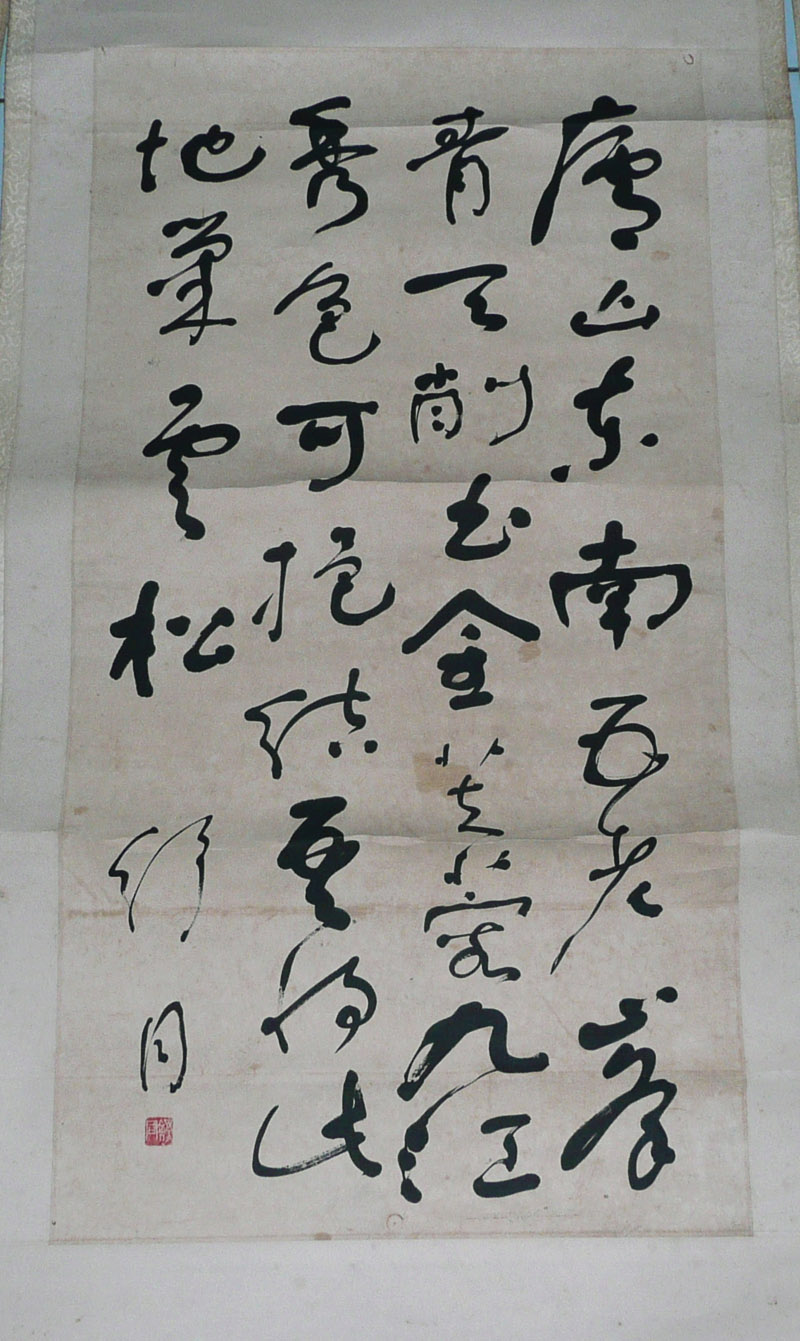 庐山东南五老峯
青天削出金芙蓉九江
秀色可揽结吾將此
地巢雲松
舒同